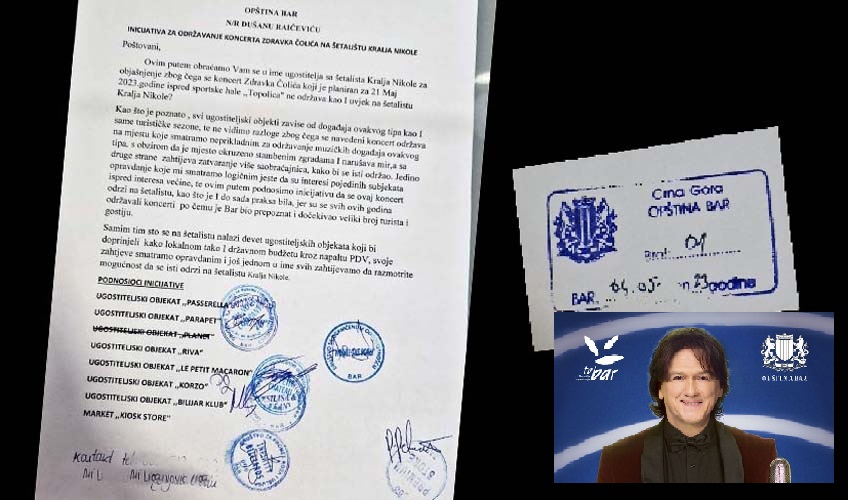 OPŠTINA BAR
N/R DUŠANU RAIČEVIĆU
INICIJATIVA ZA ODRŽAVANJE KONCERTA ZDRAVKA ČOLIĆA NA ŠETALIŠTU KRALJA NIKOLE
Poštovani,
Ovim putem obraćamo Vam se u ime ugostitelja sa šetalista Kralja Nikole za
objašnjenje zbog čega se koncert Zdravka Čolića koji je planiran za 21 Maj
2023.godine ispred sportske hale ,,Topolica" ne održava kao I uvjek na šetalistu
Kralja Nikole?
Kao što je poznato , svi ugostiteljski objekti zavise od događaja ovakvog tipa kao I
same turističke sezone, te ne vidimo razloge zbog čega se navedeni koncert održava
na mjestu koje smatramo neprikladnim za održavanje muzičkih događaja ovakvog
tipa, s obzirom da je mjesto okruzeno stambenim zgradama I narušava mir,a sa
druge strane zahtijeva zatvaranje više saobraćajnica, kako bi se isti održao. Jedino
opravdanje koje mi smatramo logičnim jeste da su interesi pojedinih subjekata
ispred interesa većine, te ovim putem podnosimo inicijativu da se ovaj koncert
odrzi na šetalistu, kao što je I do sada praksa bila, jer su se svih ovih godina
održavali koncerti po čemu je Bar bio prepoznat i dočekivao veliki broj turista i
gostiju.
Samim tim sto se na šetalistu nalazi devet ugostiteljskih objekata koji bi
doprinjeli kako lokalnom tako I državnom budžetu kroz napaltu PDV, svoje
zahtjeve smatramo opravdanim i još jednom u ime svih zahtijevamo da razmotrite
mogućnost da se isti odrzi na šetalistu Kralja Nikole.
PODNOSIOCI INICIJATIVE
UGOSTITELJSKI OBJEKAT ,,PASSERELLA
UGOSTITELJSKI OBJEKAT ,,PARAPET"
UGOSTITELJSKI OBJEKAT ,,PLANET"
UGOSTITELJSKI OBJEKAT ,,RIVA"
UGOSTITELJSKI OBJEKAT ,,LE PETIT MACARON"
UGOSTITELJSKI OBJEKAT ,,KORZO"
UGOSTITELJSKI OBJEKAT ,,BILIJAR KLUB"
MARKET ,,KIOSK STORE"
BAR
Crna Gora
OPŠTINA BAR
Broj: 01
BAR, 04.05 23 godine
tv bar
OPŠTINA BAR